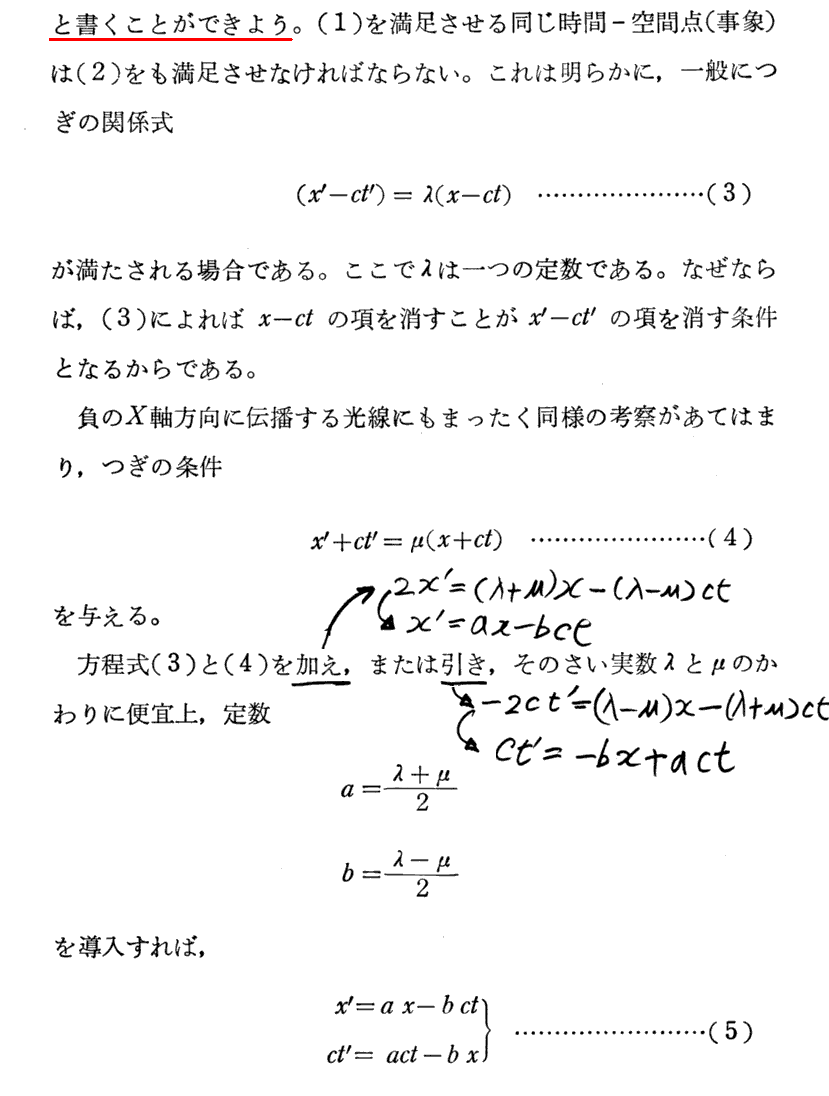 と書くことができよう。(1)を満足させる同じ時間－空間点(事象)
は(2)をも満足させなければならない。これは明らかに，一般につ
ぎの関係式
(x′−ct′) = λ(x−ct) ……………………(3)
が満たされる場合である。ここでλは一つの定数である。なぜなら
ば，(3)によれば x−ct の項を消すことが x′−ct′ の項を消す条件
となるからである。
負のX軸方向に伝播する光線にもまったく同様の考察があてはま
り，つぎの条件
x′+ct′ = μ(x+ct) ……………………(4)
2x′=(λ+μ)x−(λ−μ)ct
を与える。
x′=ax−bct
方程式(3)と(4)を加え，または引き，そのさい実数λとμのか
−2ct′=(λ−μ)x−(λ+μ)ct
わりに便宜上，定数
ct′=−bx+act
a = (λ+μ)/2
b = (λ−μ)/2
を導入すれば，
x′= a x− b ct
ct′= act − b x } ……………………(5)